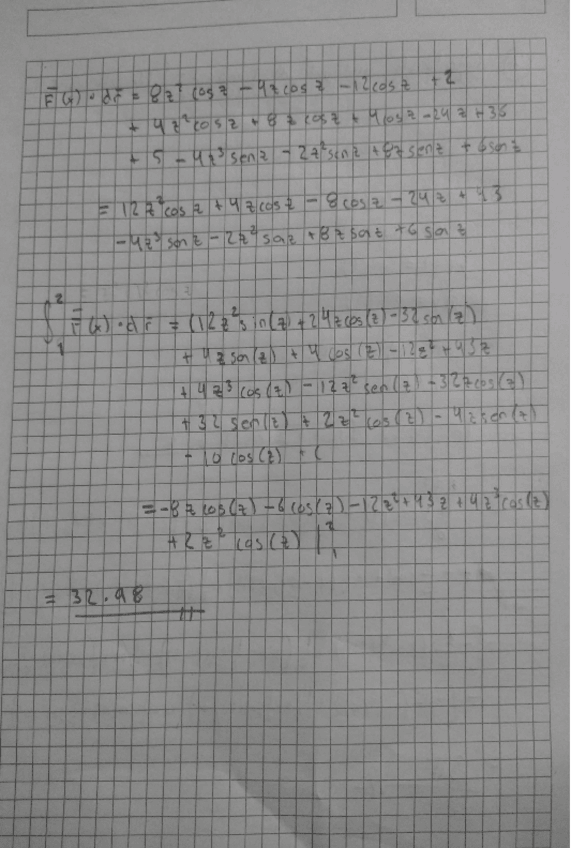 F̄(x)·dr̄ = 8z² cosz − 4zcosz − 12cosz + 2
+ 4z²cosz + 8zcosz + 4cosz − 24z + 36
+ 5 − 4z³senz − 2z²senz + 8zsenz + 6senz
= 12z²cosz + 4zcosz − 8cosz − 24z + 43
−4z³senz − 2z²senz + 8zsenz + 6senz
∫₁² F̄(x)·dr̄ = (12z²sin(z) + 24zcos(z) − 32sen(z)
+ 4zsen(z) + 4cos(z) − 12z² + 43z
+ 4z³cos(z) − 12z²sen(z) − 32zcos(z)
+ 32sen(z) + 2z²cos(z) − 4zsen(z)
− 10cos(z) + C
= −8zcos(z) − 6cos(z) − 12z² + 43z + 4z³cos(z)
+ 2z²cos(z) |₁²
= 32.98